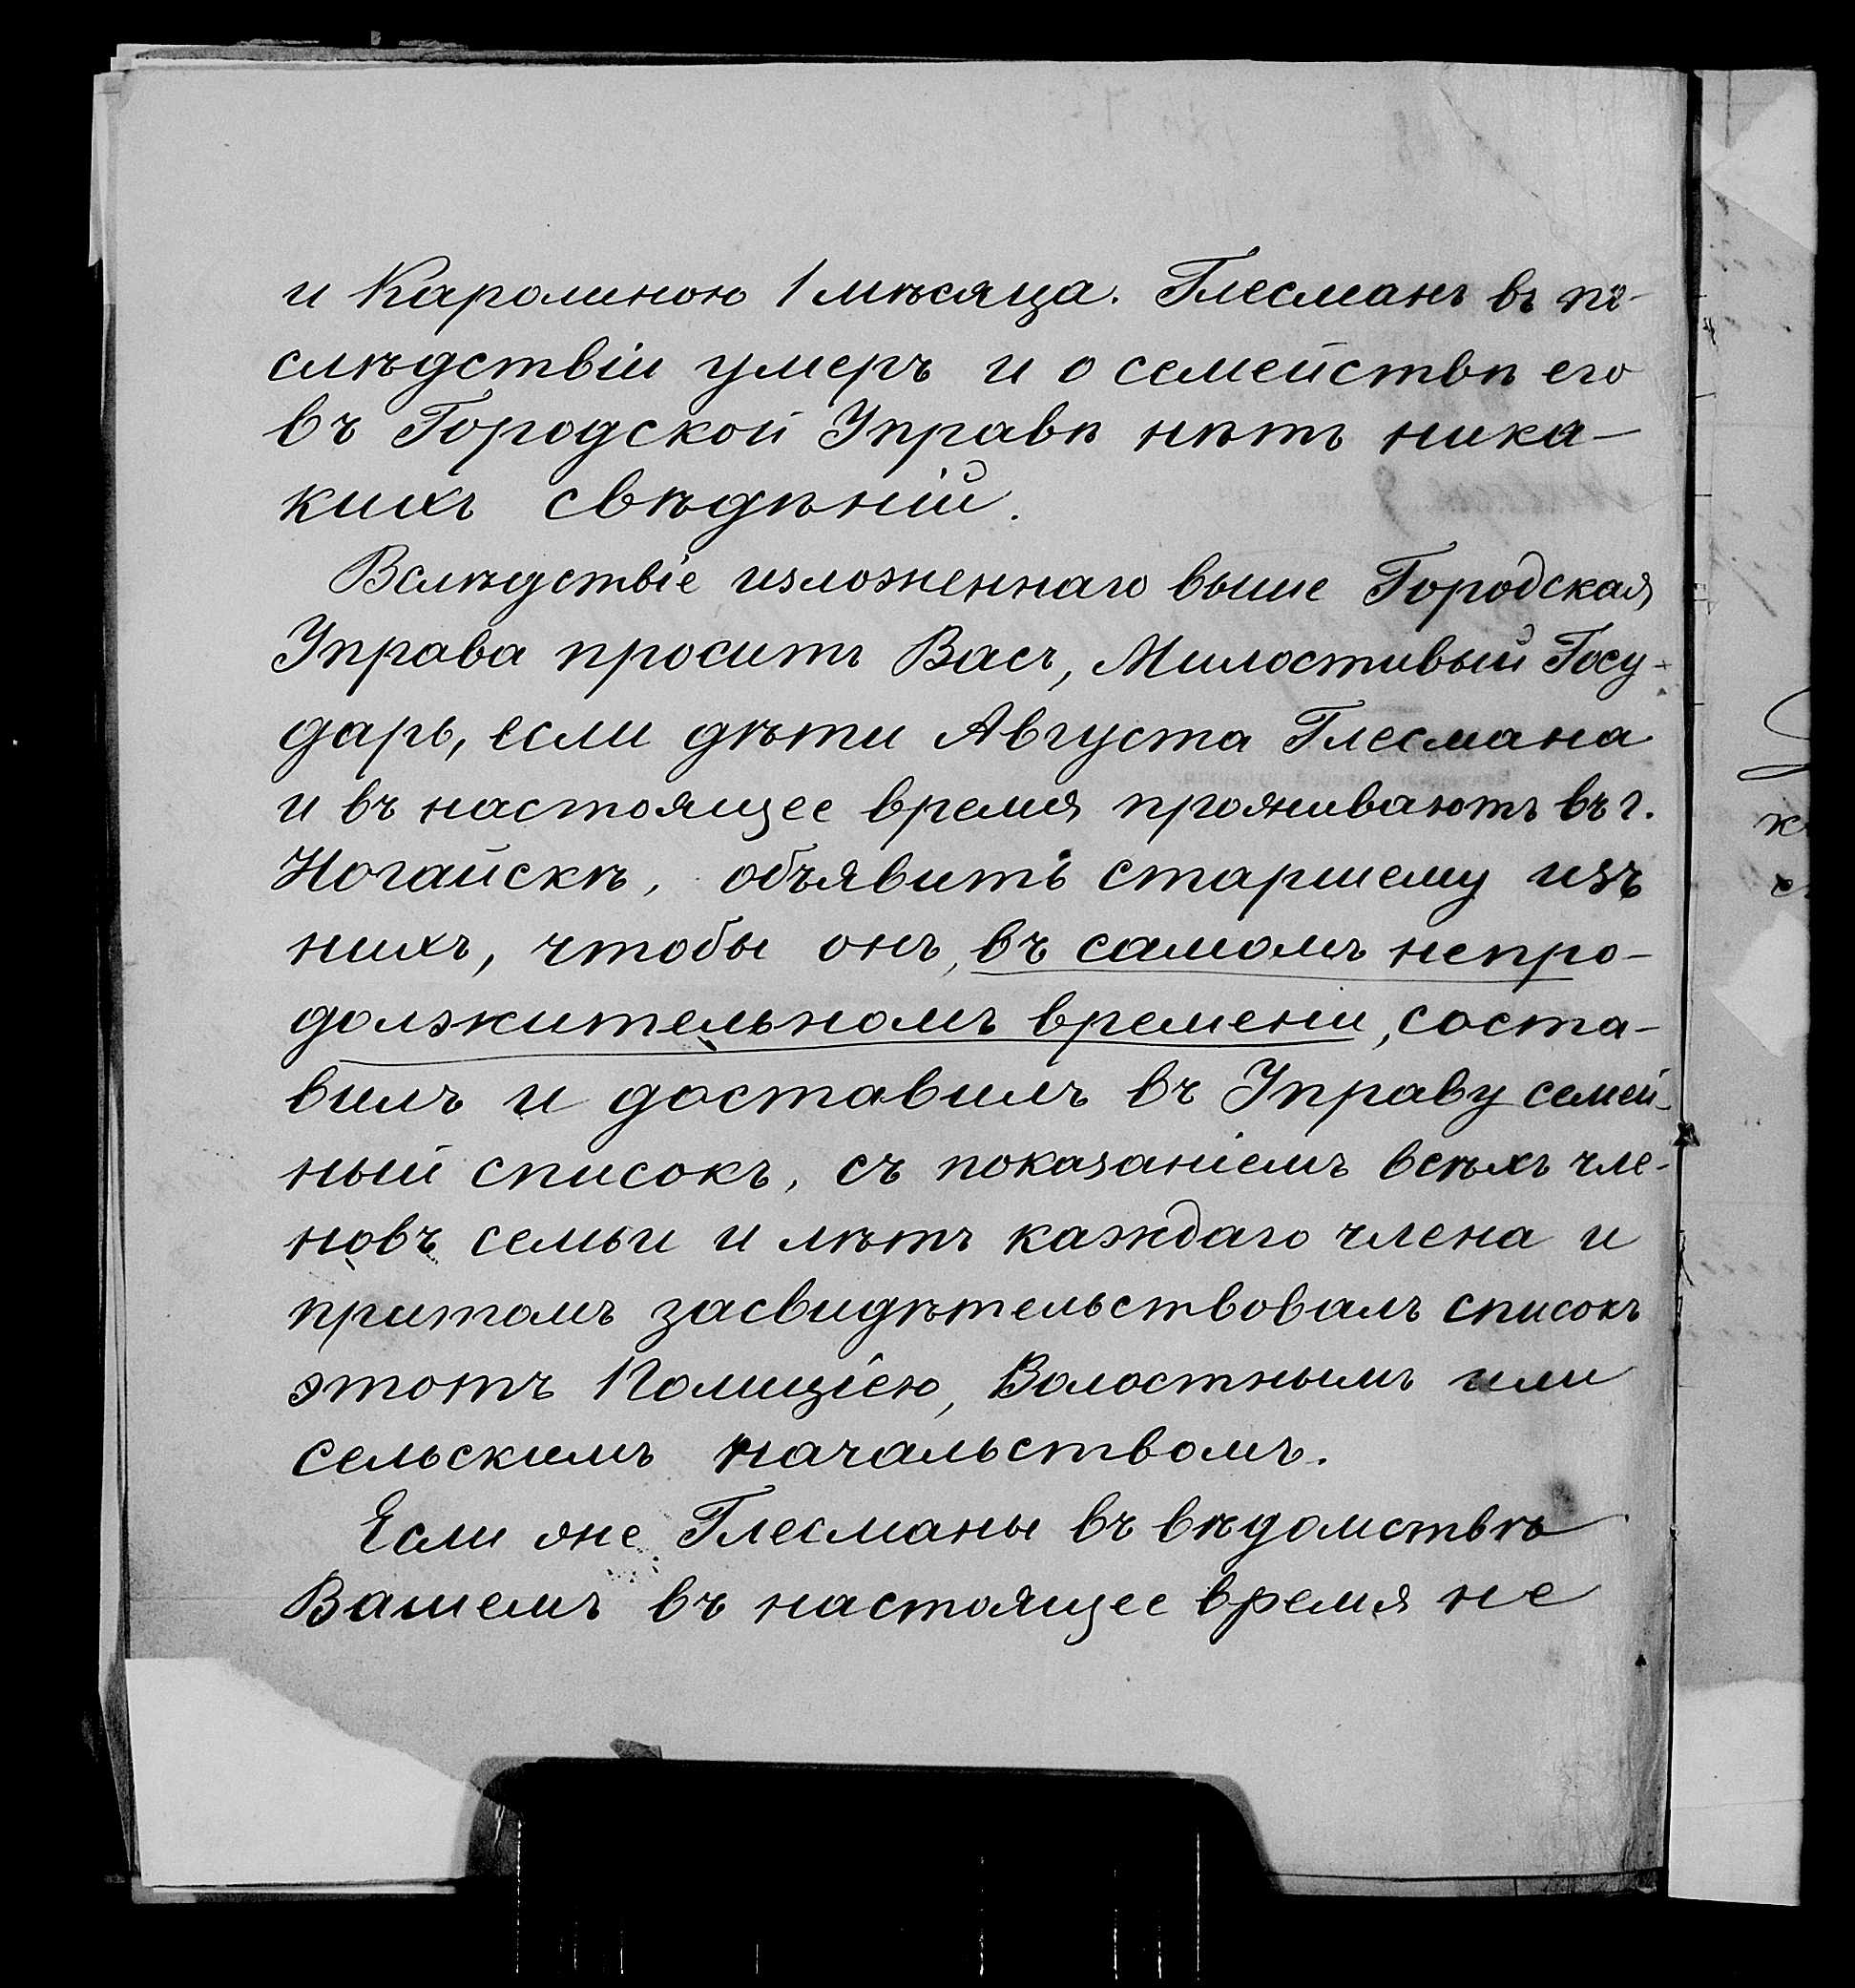 и Каролиною 1 мѣсяца. Глесманъ въ по-
слѣдствіи умеръ и о семействѣ его
въ Городской Управѣ нѣтъ ника-
кихъ свѣдѣній.
Вслѣдствіе изложеннаго выше Городская
Управа проситъ Васъ, Милостивый Госу-
дарь, если дѣти Августа Глесмана
и въ настоящее время проживаютъ въ г.
Ногайскѣ, объявить старшему изъ
нихъ, чтобы онъ, въ самомъ непро-
должительномъ времени, соста-
вилъ и доставилъ въ Управу семей-
ный списокъ, съ показаніемъ всѣхъ чле-
новъ семьи и лѣтъ каждаго члена и
притомъ засвидѣтельствовалъ списокъ
этотъ Полиціею, Волостнымъ или
сельскимъ начальствомъ.
Если же Глесманы въ вѣдомствѣ
Вашемъ въ настоящее время не